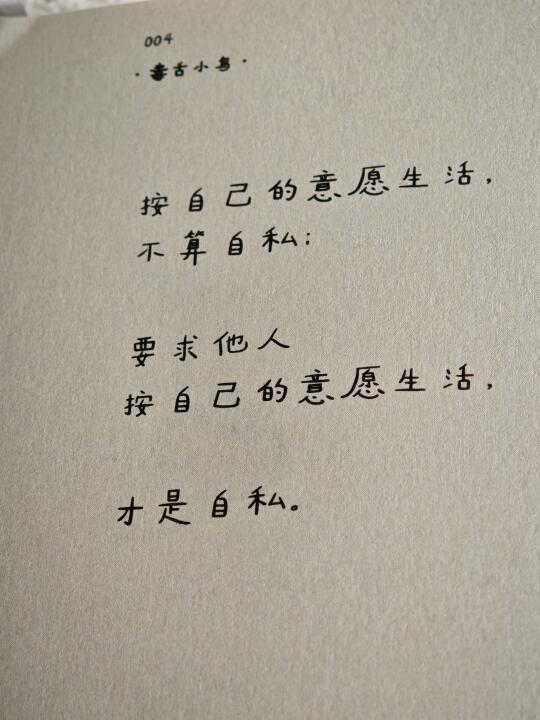 004
·毒舌小鸟·
按自己的意愿生活，
不算自私；
要求他人
按自己的意愿生活，
才是自私。